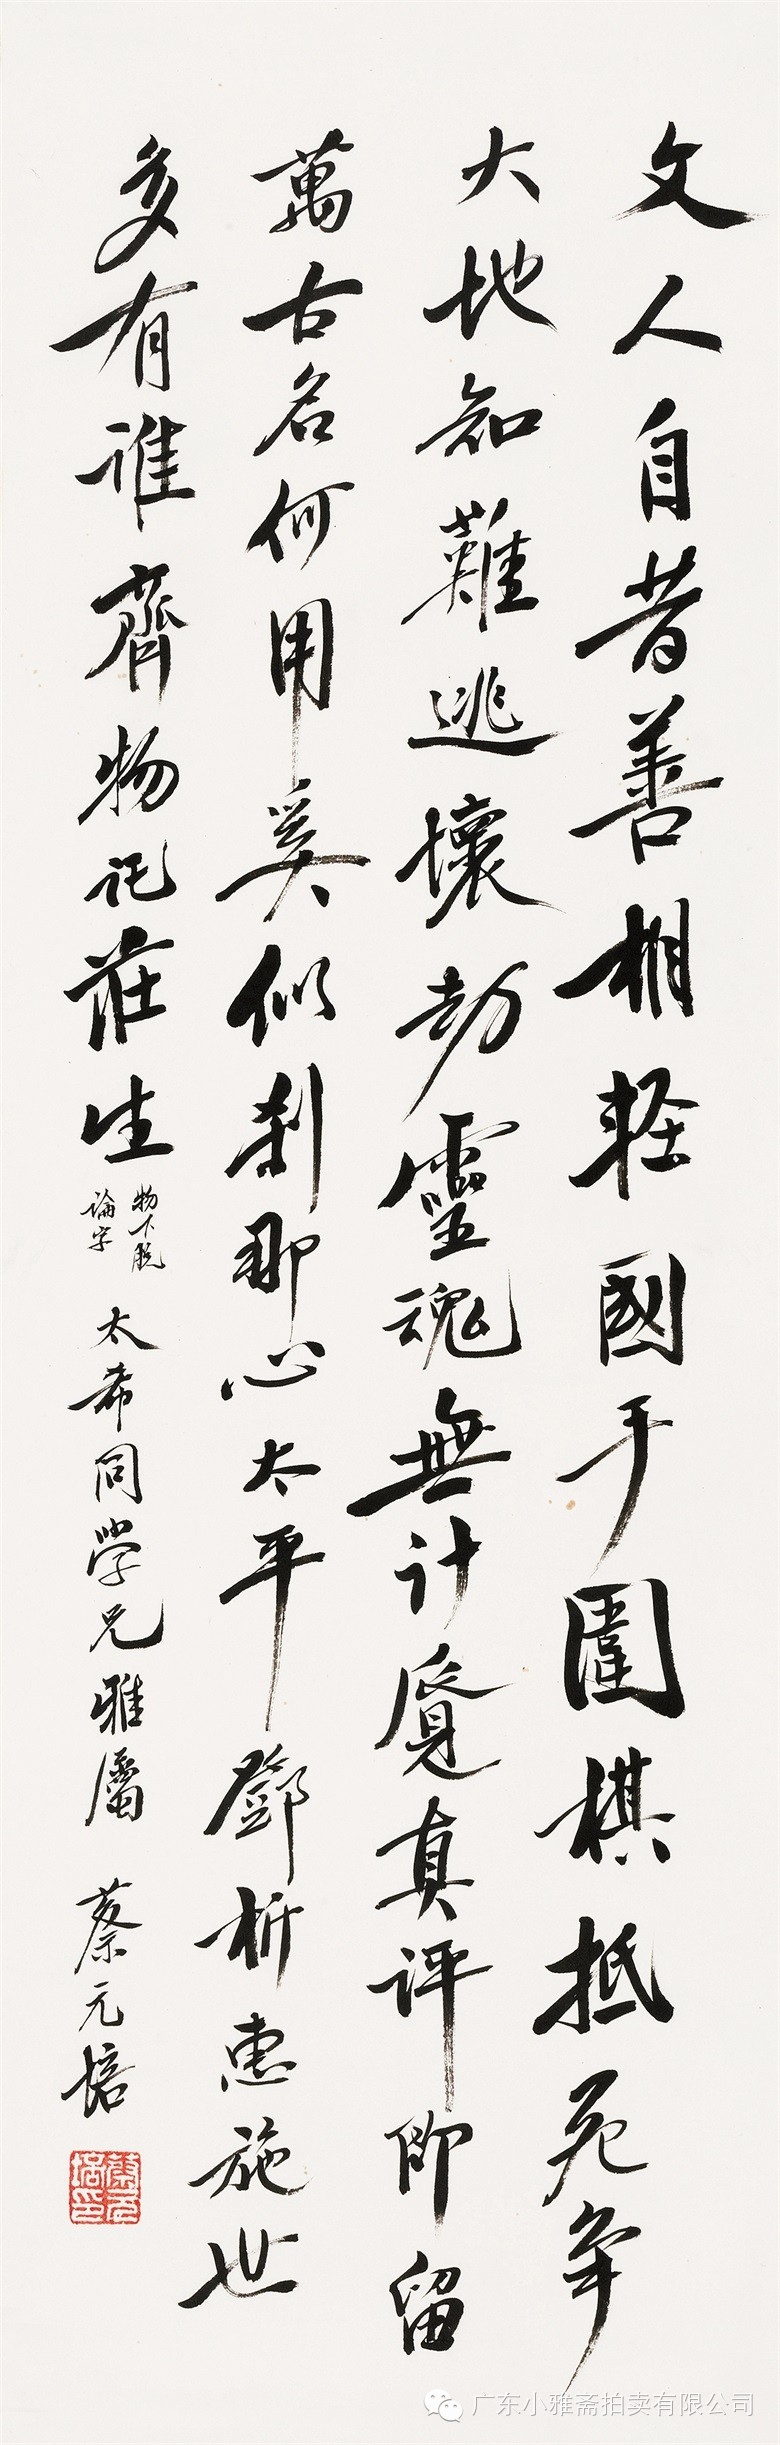 文人自昔善相輕國手圍棋抵死爭
大地知難逃壞劫靈魂無計覓真評即留
萬古名何用奚似剎那心太平鄧析惠施世
多有誰齊物託莊生物下脫論字太希同學兄雅屬蔡元培
蔡元培印
广东小雅斋拍卖有限公司